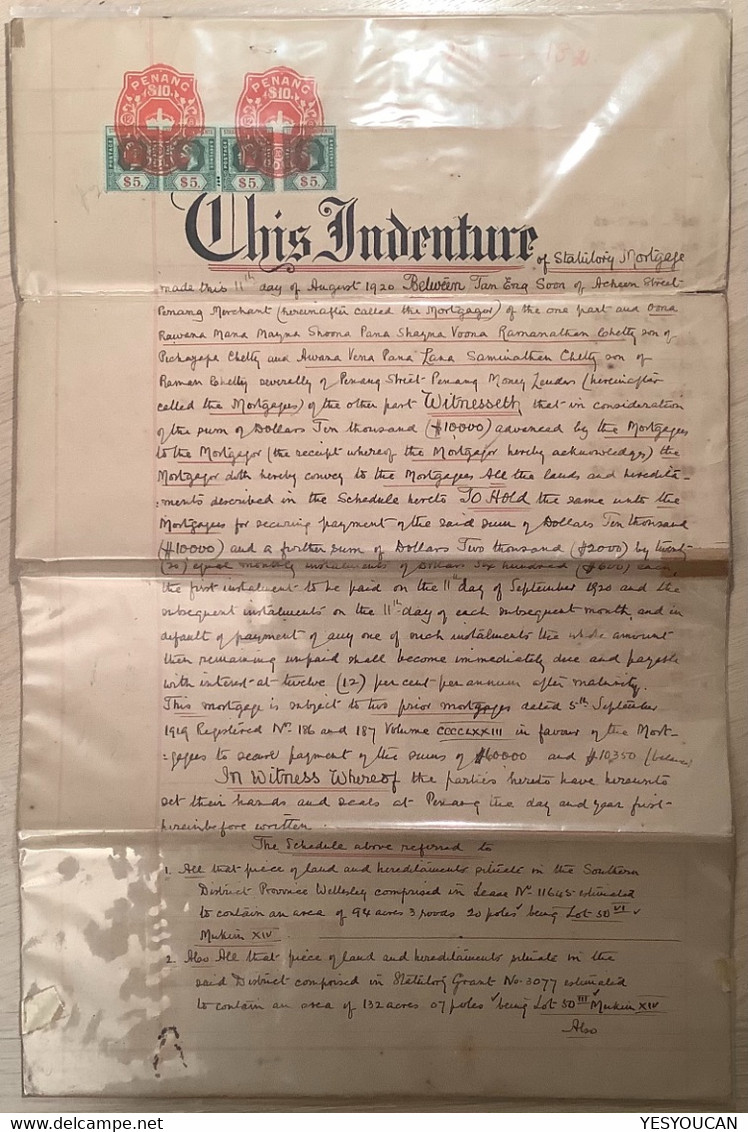 PENANG PENANG
$10. $10.
$5. $5. $5. $5.
This Indenture of Statutory Mortgage
made this 11th day of August 1920 Between Tan Eng Soon of Acheen Street
Penang Merchant (hereinafter called the Mortgagor) of the one part and Oona
Rawana Mana Mayna Shoona Pana Shayna Voona Ramanathan Chetty son of
Pichayapa Chetty and Awana Vena Pana Lana Saminathen Chetty son of
Ramen Chetty severally of Penang Street Penang Money Lenders (hereinafter
called the Mortgagees) of the other part Witnesseth that in consideration
of the sum of Dollars Ten thousand ($10000) advanced by the Mortgagees
to the Mortgagor (the receipt whereof the Mortgagor hereby acknowledges) the
Mortgagor doth hereby convey to the Mortgagees All the lands and heredita-
=ments described in the Schedule hereto TO HOLD the same unto the
Mortgagees for securing payment of the said sum of Dollars Ten thousand
($10000) and a further sum of Dollars Two thousand ($2000) by twenty
(20) equal monthly instalments of Dollars Six hundred ($600) each
the first instalment to be paid on the 11th day of September 1920 and the
subsequent instalments on the 11th day of each subsequent month and in
default of payment of any one of such instalments the whole amount
then remaining unpaid shall become immediately due and payable
with interest at twelve (12) per cent per annum after maturity.
This mortgage is subject to two prior mortgages dated 5th September
1919 Registered No. 186 and 187 Volume CCCCLXXIII in favour of the Mort-
=gagees to secure payment of the sums of $60000 and $10,350 (balance)
In Witness Whereof the parties hereto have hereunto
set their hands and seals at Penang the day and year first
hereinbefore written.
The Schedule above referred to
1. All that piece of land and hereditaments situate in the Southern
District Province Wellesley comprised in Lease No. 11645 estimated
to contain an area of 94 acres 3 roods 20 poles being Lot 50 VI
Mukim XIV.
2. Also All that piece of land and hereditaments situate in the
said District comprised in Statutory Grant No. 3077 estimated
to contain an area of 132 acres 07 poles being Lot 50 III Mukim XIV
Also
YESYOUCAN